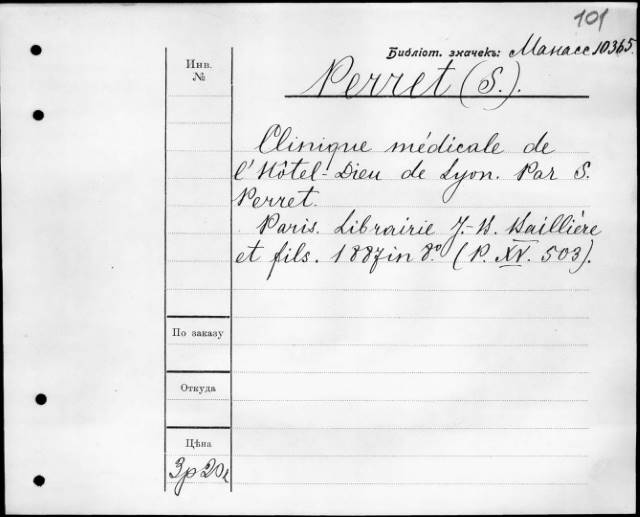 101
Библіот. значекъ: Манасс 10365.
Инв.
№
Perret (S.).
Clinique médicale de
l'Hôtel-Dieu de Lyon. Par S.
Perret.
Paris. Librairie J.-B. Baillière
et fils. 1887 in 8.º (P. XV. 503).
По заказу
Откуда
Цѣна
3р 20к